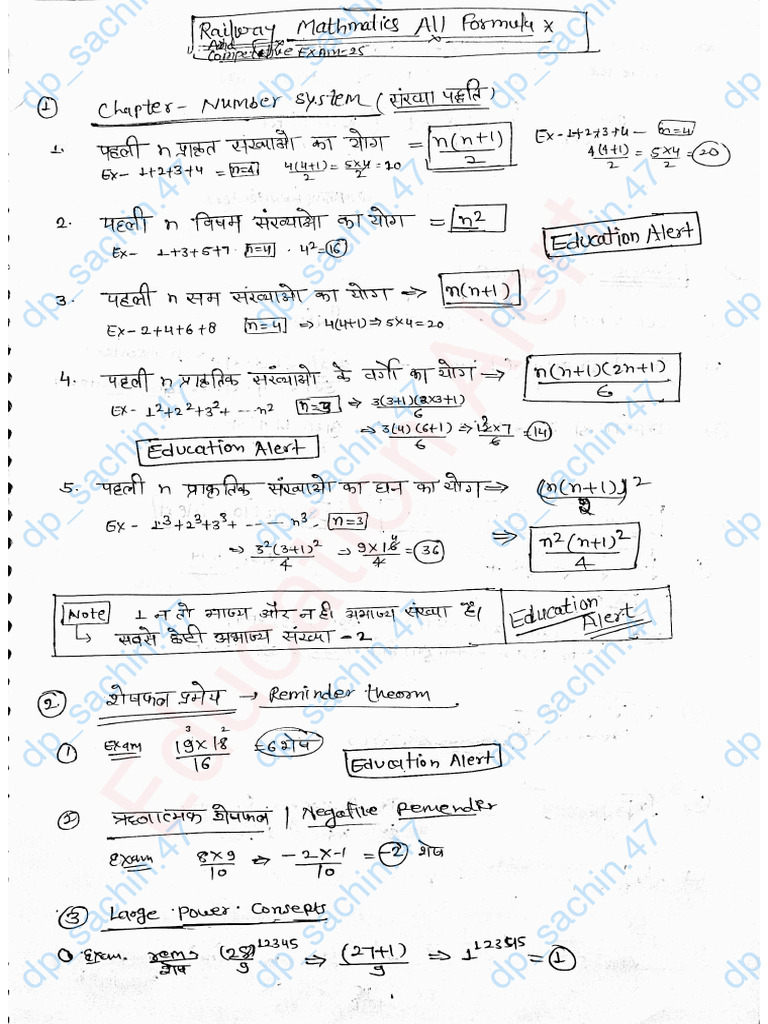 Railway Mathmatics All Formula x
And Competetive EXAM-25
① Chapter - Number System (संख्या पद्धति)
1. पहली n प्राकृत संख्याओ का योग = n(n+1)/2
Ex - 1+2+3+4 = n=4 4(4+1)/2 = 5×4/2 = 20
Ex - 1+2+3+4 - n=4
4(4+1)/2 = 5×4/2 = 20
2. पहली n विषम संख्याओ का योग = n2
Ex - 1+3+5+7 · n=4 · 4² = 16
Education Alert
3. पहली n सम संख्याओ का योग => n(n+1)
Ex - 2+4+6+8 n=4 => 4(4+1) => 5×4=20
4. पहली n प्राकृतिक संख्याओ के वर्गो का योग => n(n+1)(2n+1)/6
Ex - 1²+2²+3²+ ... n² n=3 => 3(3+1)(2×3+1)/6
=> 3(4)(6+1)/6 => 12×7/6 = 14
Education Alert
5. पहली n प्राकृतिक संख्याओ का घन का योग => (n(n+1)/2)²
Ex - 1³+2³+3³+ ------ n³ - n=3 => n²(n+1)²/4
=> 3²(3+1)²/4 => 9×16/4 = 36
Note 1 न तो भाज्य और न ही अभाज्य संख्या है।
सबसे छोटी अभाज्य संख्या - 2
Education Alert
② शेषफल प्रमेय → Reminder theorm
① Exam 19×18/16 = 6 शेष
3 2
Education Alert
② ऋणात्मक शेषफल | Negative Remender
Exam 8×9/10 => -2×-1/10 = -2 शेष
③ Large Power Consepts
① Exam. rem/शेष (28)^12345/9 => (27+1)/9 => 1^12345 = 1
Education Alert
dp_sachin.47